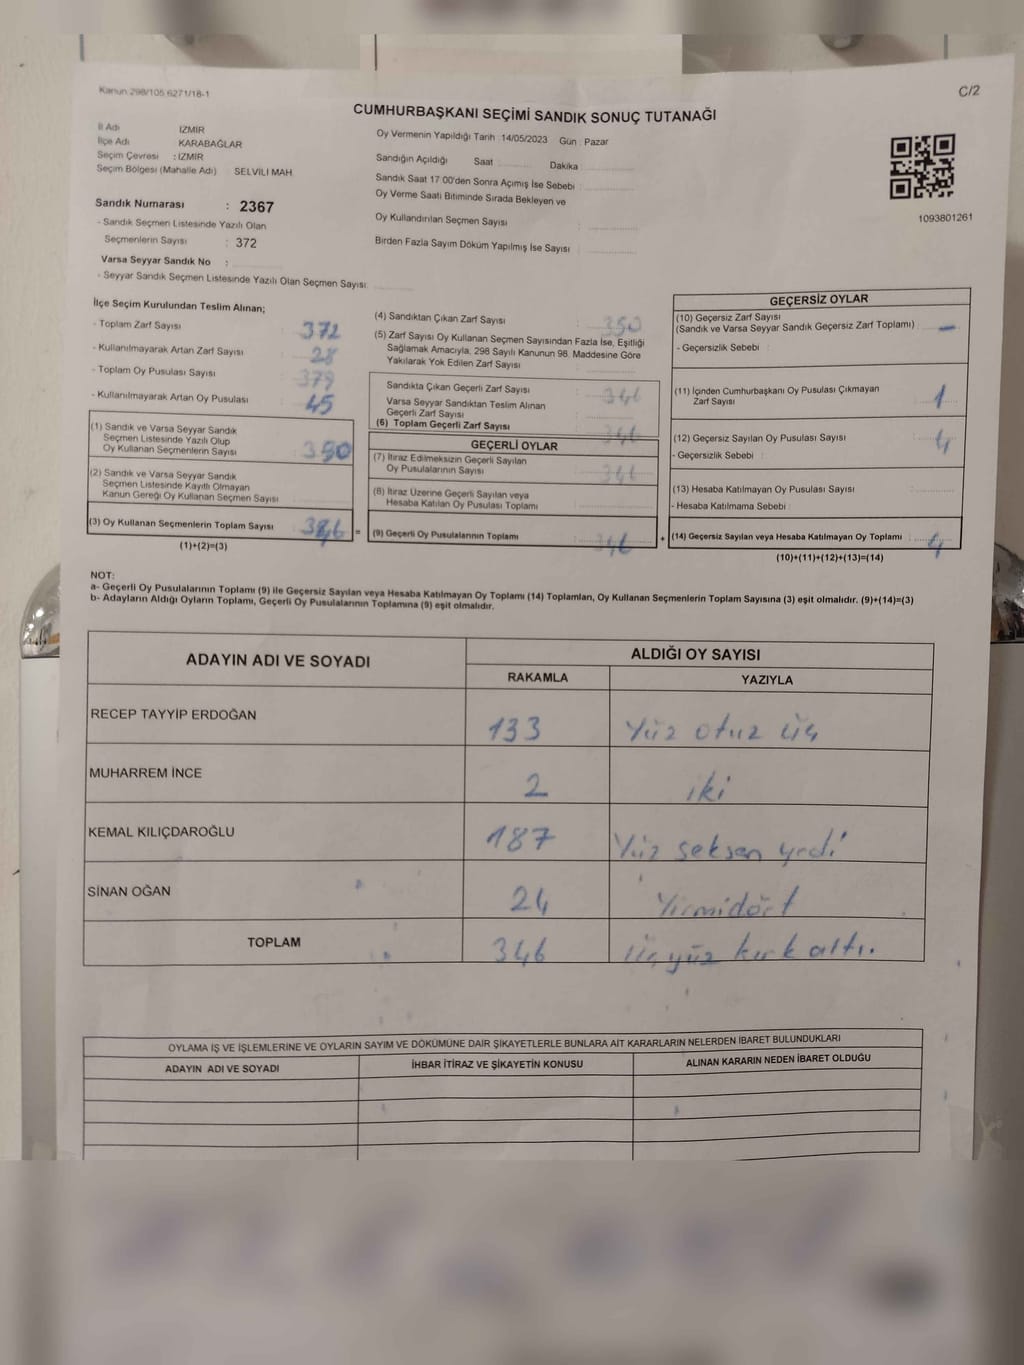 Kanun 298/105 6271/18-1
C/2
CUMHURBAŞKANI SEÇİMİ SANDIK SONUÇ TUTANAĞI
İl Adı İZMİR
İlçe Adı KARABAĞLAR
Seçim Çevresi : İZMİR
Seçim Bölgesi (Mahalle Adı) SELVİLİ MAH.
Oy Vermenin Yapıldığı Tarih : 14/05/2023 Gün : Pazar
Sandığın Açıldığı Saat Dakika
Sandık Saat 17.00'den Sonra Açımış İse Sebebi :
Oy Verme Saati Bitiminde Sırada Bekleyen ve
Oy Kullandırılan Seçmen Sayısı :
Birden Fazla Sayım Döküm Yapılmış İse Sayısı :
1093801261
Sandık Numarası : 2367
- Sandık Seçmen Listesinde Yazılı Olan
Seçmenlerin Sayısı : 372
Varsa Seyyar Sandık No :
- Seyyar Sandık Seçmen Listesinde Yazılı Olan Seçmen Sayısı
İlçe Seçim Kurulundan Teslim Alınan;
- Toplam Zarf Sayısı : 372
- Kullanılmayarak Artan Zarf Sayısı : 28
- Toplam Oy Pusulası Sayısı : 379
- Kullanılmayarak Artan Oy Pusulası : 45
(1) Sandık ve Varsa Seyyar Sandık
Seçmen Listesinde Yazılı Olup
Oy Kullanan Seçmenlerin Sayısı : 350
(2) Sandık ve Varsa Seyyar Sandık
Seçmen Listesinde Kayıtlı Olmayan
Kanun Gereği Oy Kullanan Seçmen Sayısı
(3) Oy Kullanan Seçmenlerin Toplam Sayısı =
(1)+(2)=(3)
(4) Sandıktan Çıkan Zarf Sayısı : 350
(5) Zarf Sayısı Oy Kullanan Seçmen Sayısından Fazla İse, Eşitliği
Sağlamak Amacıyla, 298 Sayılı Kanunun 98. Maddesine Göre
Yakılarak Yok Edilen Zarf Sayısı :
Sandıkta Çıkan Geçerli Zarf Sayısı : 346
Varsa Seyyar Sandıktan Teslim Alınan
Geçerli Zarf Sayısı
(6) Toplam Geçerli Zarf Sayısı 346
GEÇERLİ OYLAR
(7) İtiraz Edilmeksizin Geçerli Sayılan
Oy Pusulalarının Sayısı : 346
(8) İtiraz Üzerine Geçerli Sayılan veya
Hesaba Katılan Oy Pusulası Toplamı
(9) Geçerli Oy Pusulalarının Toplamı : 346 +
GEÇERSİZ OYLAR
(10) Geçersiz Zarf Sayısı
(Sandık ve Varsa Seyyar Sandık Geçersiz Zarf Toplamı) : -
- Geçersizlik Sebebi :
(11) İçinden Cumhurbaşkanı Oy Pusulası Çıkmayan
Zarf Sayısı 1
(12) Geçersiz Sayılan Oy Pusulası Sayısı : 4
- Geçersizlik Sebebi :
(13) Hesaba Katılmayan Oy Pusulası Sayısı :
- Hesaba Katılmama Sebebi :
(14) Geçersiz Sayılan veya Hesaba Katılmayan Oy Toplamı : 4
(10)+(11)+(12)+(13)=(14)
NOT:
a- Geçerli Oy Pusulalarının Toplamı (9) ile Geçersiz Sayılan veya Hesaba Katılmayan Oy Toplamı (14) Toplamları, Oy Kullanan Seçmenlerin Toplam Sayısına (3) eşit olmalıdır. (9)+(14)=(3)
b- Adayların Aldığı Oyların Toplamı, Geçerli Oy Pusulalarının Toplamına (9) eşit olmalıdır.
ADAYIN ADI VE SOYADI ALDIĞI OY SAYISI
RAKAMLA YAZIYLA
RECEP TAYYİP ERDOĞAN 133 Yüz otuz üç
MUHARREM İNCE 2 iki
KEMAL KILIÇDAROĞLU 187 Yüz seksen yedi
SİNAN OĞAN 24 Yirmidört
TOPLAM 346 üçyüz kırk altı.
OYLAMA İŞ VE İŞLEMLERİNE VE OYLARIN SAYIM VE DÖKÜMÜNE DAİR ŞİKAYETLERLE BUNLARA AİT KARARLARIN NELERDEN İBARET BULUNDUKLARI
ADAYIN ADI VE SOYADI İHBAR İTİRAZ VE ŞİKAYETİN KONUSU ALINAN KARARIN NEDEN İBARET OLDUĞU